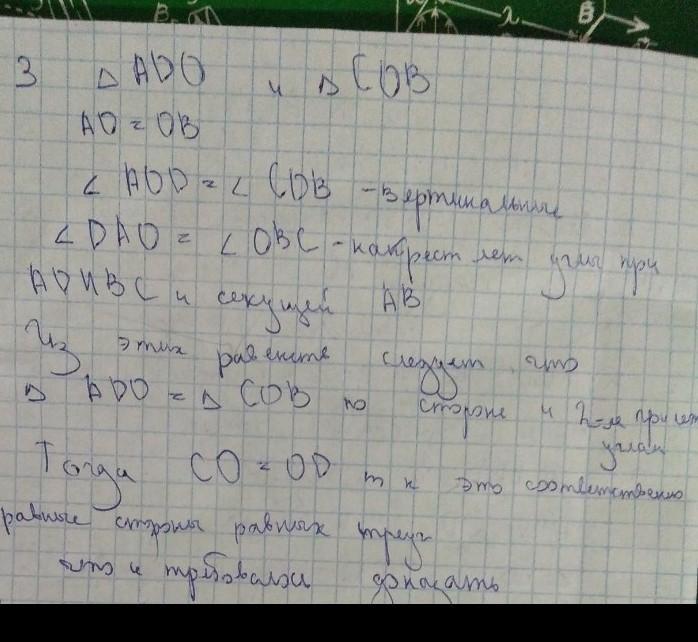 λ B
3 Δ ADO и Δ COB
AO = OB
∠ AOD = ∠ COB - вертикальные
∠ DAO = ∠ OBC - накрест леж углы при
AD ИBC и секущей AB
Из этих равенств следует, что
Δ ADO = Δ COB по стороне и 2-м прилеж
углам
Тогда CO = OD т к это соответственно
равные стороны равных треуг
что и требовалось доказать